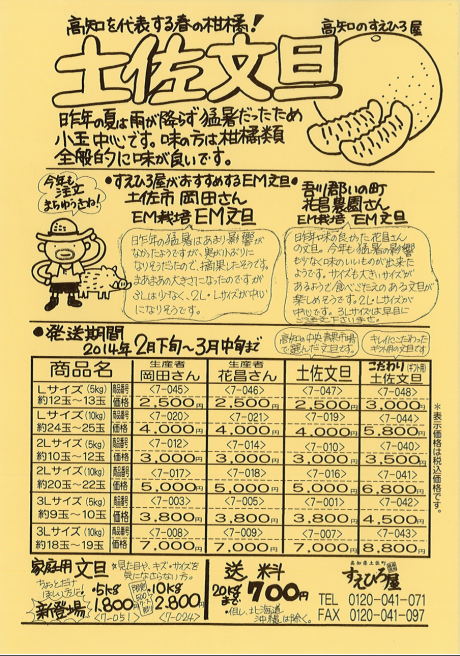 高知を代表する春の柑橘!
高知のすえひろ屋
土佐文旦
昨年の夏は雨が降らず猛暑だったため
小玉中心です。味の方は柑橘類
全般的に味が良いです。
今年も注文
まちゅうさね!
•すえひろ屋がおすすめするEM文旦•
土佐市 岡田さん
EM栽培 EM文旦
吾川郡いの町
花昌農園さん
EM栽培 EM文旦
昨年の猛暑はあまり影響が
なかったようですが、実が小ぶりに
なりそうだったので、摘果したそうです。
まあまあの大きさになったのですが
3Lは少なく、2L・Lサイズが中心
になりそうです。
昨年味の良かった花昌さん
の文旦。今年も猛暑の影響
も少なく味のいいものが出来た
ようです。サイズも大きいサイズが
あるようで食べごたえのある文旦が
楽しめそうです。2L・Lサイズが
中心です。3Lサイズは早目に
ご注文下さいませ。
•発送期間
2014年2月下旬〜3月中旬まで
高知の中央青果市場
で選んだ文旦です。
キレイにこだわった
ギフト用の文旦です
商品名 生産者 岡田さん 生産者 花昌さん 土佐文旦 こだわり(ギフト用) 土佐文旦
Lサイズ(5kg) 商品番号 <7-045> <7-046> <7-047> <7-048>
約12玉〜13玉 価格 2,500円 2,500円 2,500円 3,000円
Lサイズ(10kg) 商品番号 <7-020> <7-021> <7-019> <7-044>
約24玉〜25玉 価格 4,000円 4,000円 4,000円 5,800円
2Lサイズ(5kg) 商品番号 <7-012> <7-014> <7-010> <7-040>
約10玉〜12玉 価格 3,000円 3,000円 3,000円 3,500円
2Lサイズ(10kg) 商品番号 <7-017> <7-018> <7-016> <7-041>
約20玉〜22玉 価格 5,000円 5,000円 5,000円 6,800円
3Lサイズ(5kg) 商品番号 <7-003> <7-005> <7-001> <7-042>
約9玉〜10玉 価格 3,800円 3,800円 3,800円 4,500円
3Lサイズ(10kg) 商品番号 <7-008> <7-009> <7-007> <7-043>
約18玉〜19玉 価格 7,000円 7,000円 7,000円 8,800円
*表示価格は税込価格です。
家庭用 文旦
*見た目や、キズ・サイズを
気になさらない方。
ちょっとだけ
ほしい方に!
新登場
•5kg
1,800円
<7-051>
10kg
2,800円
<7-024>
送料
20kgまで 700円
•但し、北海道
沖縄は除く。
高知県土佐町
すえひろ屋
TEL 0120-041-071
FAX 0120-041-097